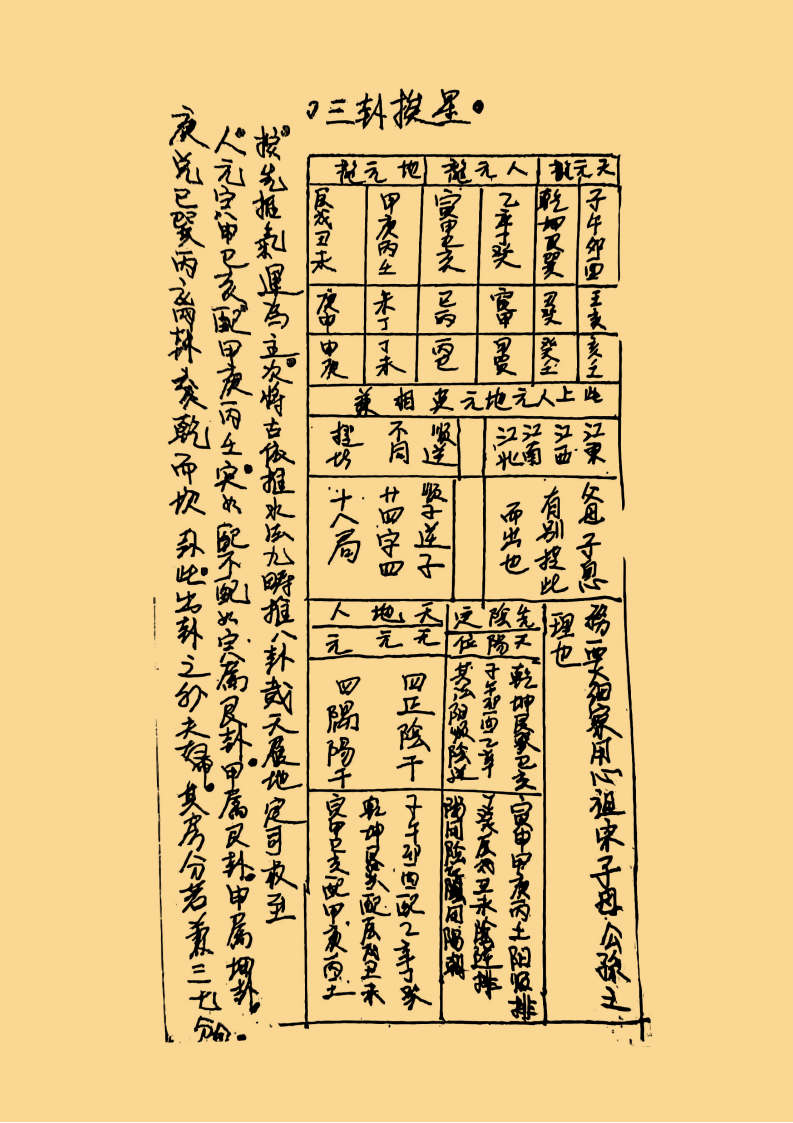 三卦挨星
天元龍
人元龍
地元龍
子午卯酉
乾坤艮巽
乙辛丁癸
寅申巳亥
甲庚丙壬
辰戌丑未
壬亥
丑癸
寅申
巳丙
未丁
庚申
亥壬
癸丑
甲寅
丙巳
丁未
甲庚
此上人元地元與相兼
江東
江西
江南
江北
順逆
不同
挨均
父母子息
有別挨此
而出也
順子逆子
廿四字四
十八局
務要大細察用心祖宗子母公孫之
理也
先天
陰陽
定位
天元
地元
人元
乾坤艮巽巳亥
子午卯酉乙辛
其法陽順陰逆
四正陰干
四隅陽干
寅申甲庚丙壬陽順排
丁癸辰戌丑未陰逆排
子午卯酉配乙辛丁癸
乾坤艮巽配辰戌丑未
寅申巳亥配甲庚丙壬
挨先推氣運為主次將古依推水法九疇推八卦裁天居地定可收至
人元寅申巳亥配甲庚丙壬寅如配不配如寅屬艮卦甲屬艮卦申屬坤卦
庚兌巳巽丙離卦戌乾而坎卦此出卦之外夫婦其房分若兼三七分